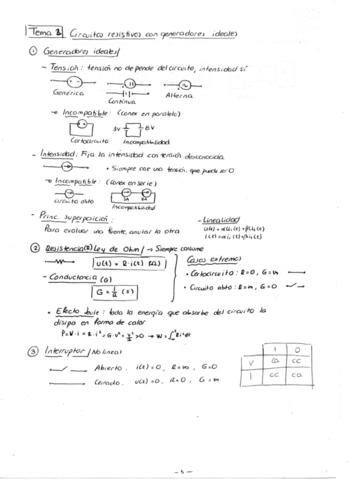 Tema 2 Circuitos resistivos con generadores ideales
① Generadores ideales/
- Tensión: tensión no depende del circuito, intensidad sí
Genérica
Continua
Alterna
→ Incompatible: (conex en paralelo)
3V 8V
Cortocircuito Incompatibilidad
- Intensidad: Fija la intensidad con tensión desconocida
• Siempre cae una tensión, que puede ser 0
→ Incompatible: (conex en serie)
circuito abto
Incompatibilidad
- Princ. superposición:
Para evaluar una fuente, anular la otra
- Linealidad
② Resistencia(R) Ley de Ohm/ → Siempre consume
u(t) = R·i(t) (Ω)
Casos extremos
• Cortocircuito: R=0, G=∞
- Conductancia (G)
G = 1/R (S)
• Circuito abto: R=∞, G=0
• Efecto Joule: toda la energía que absorbe del circuito la
disipa en forma de calor
P=V·i = R·i² = G·V² = V²/R >0 → W=∫Ri²dt
③ Interruptor/No lineal
Abierto, i(t)=0, R=∞, G=0
Cerrado, u(t)=0, R=0, G=∞
I 0
V ca cc
I cc ca
- 5 -